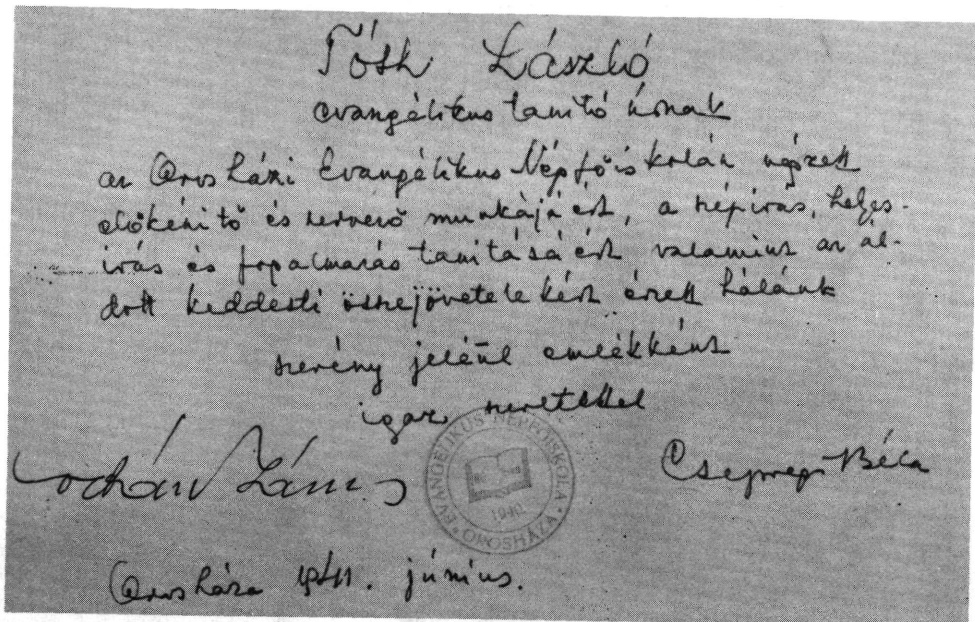 Tóth László
evangélikus tanító úrnak
az Orosházi Evangélikus Népfőiskolán végzett
előkészítő és szervező munkájáért, a népírás, helyes-
írás és fogalmazás tanításáért valamint az ál-
dott keddesti összejöveteleként érzett hálánk
szerény jeléül emlékként
igaz szeretettel
János
Csepregi Béla
EVANGÉLIKUS NÉPFŐISKOLA
1940
OROSHÁZA
Orosháza 1941. június.